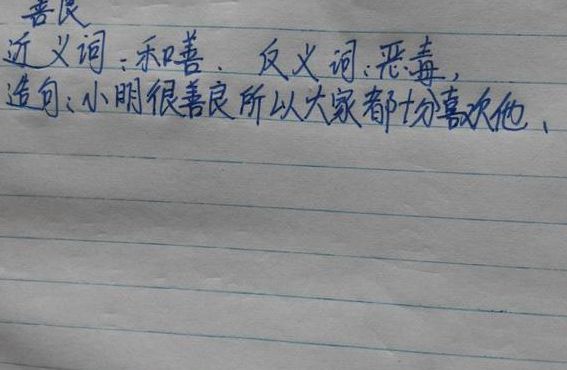 善良
近义词：和善．反义词：恶毒，
造句：小明很善良所以大家都十分喜欢他、